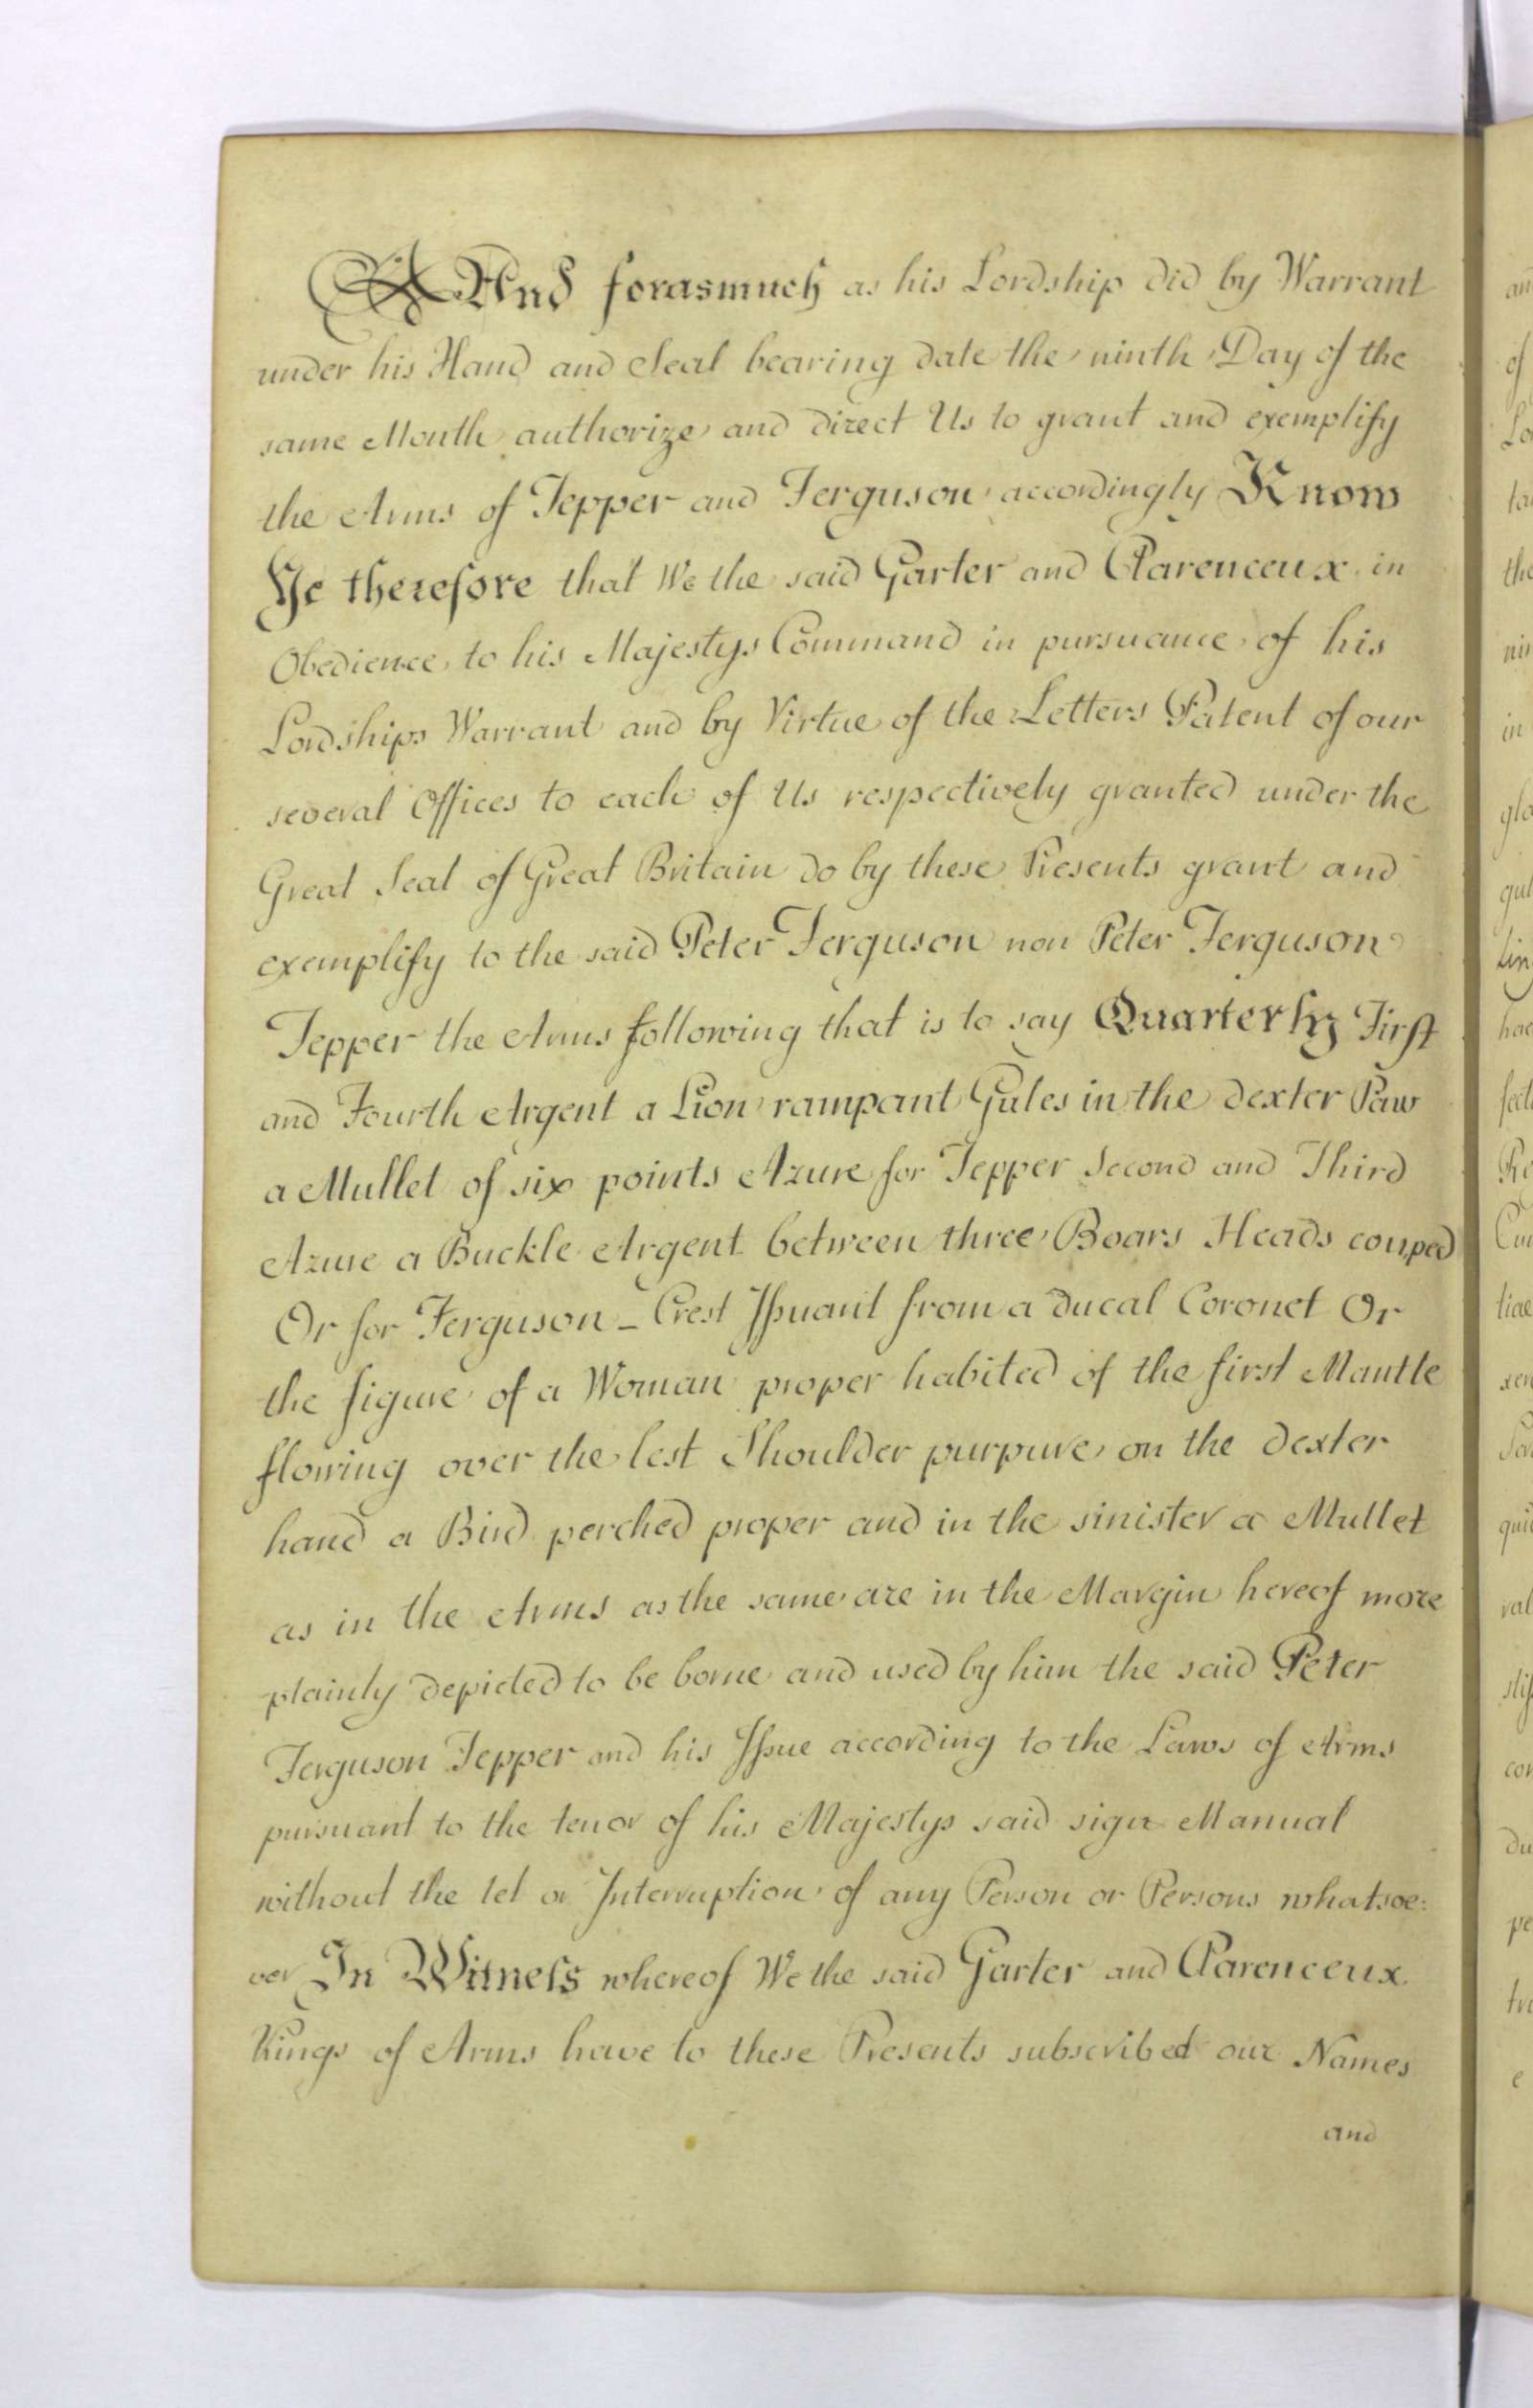 And forasmuch as his Lordship did by Warrant
under his Hand and Seal bearing date the ninth Day of the
same Month authorize and direct Us to grant and exemplify
the Arms of Tepper and Ferguson accordingly Know
Ye therefore that We the said Garter and Clarenceux in
Obedience to his Majestys Command in pursuance of his
Lordships Warrant and by Virtue of the Letters Patent of our
several Offices to each of Us respectively granted under the
Great Seal of Great Britain do by these Presents grant and
exemplify to the said Peter Ferguson now Peter Ferguson
Tepper the Arms following that is to say Quarterly First
and Fourth Argent a Lion rampant Gules in the dexter Paw
a Mullet of six points Azure for Tepper Second and Third
Azure a Buckle Argent between three Boars Heads couped
Or for Ferguson _ Crest Issuant from a ducal Coronet Or
the figure of a Woman proper habited of the first Mantle
flowing over the left Shoulder purpure on the dexter
hand a Bird perched proper and in the sinister a Mullet
as in the Arms as the same are in the Margin hereof more
plainly depicted to be borne and used by him the said Peter
Ferguson Tepper and his Issue according to the Laws of Arms
pursuant to the tenor of his Majestys said sign Manual
without the let or Interruption of any Person or Persons whatsoe:
ver In Witness whereof We the said Garter and Clarenceux
Kings of Arms have to these Presents subscribed our Names
and